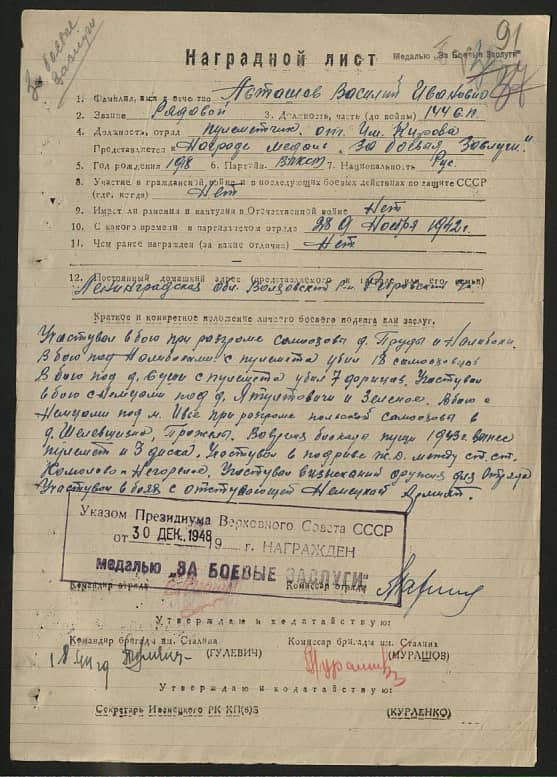 За боевые
заслуги
91
Наградной лист Медалью „За Боевые Заслуги"
1. Фамилия, имя и отчество Авташов Василий Иванович
2. Звание Рядовой 3. Должность, часть (до войны) 144 с.п.
4. Должность, отряд пулеметчик отр. Им. Кирова
Представляется Награде медаль „За боевая Заслуги"
5. Год рождения 6. Партийн. 7. Национальность Рус.
8. Участие в гражданской войне и в последующих боевых действиях по защите СССР
(где, когда) Нет
9. Имеет ли ранения и контузии в Отечественной войне Нет
10. С какого времени в партизанском отряде Ноября 1942г.
11. Чем ранее награжден (за какие отличия) Нет
12. Постоянный домашний адрес (представляемого к награде или его семьи)
Ленинградская Обл.
Краткое и конкретное изложение личного боевого подвига или заслуг.
Участвовал в бою при розгроме самоохова д. Пруда и Налибоки.
В бою под Налибоками с пулемета убил 18 самооховцов
В бою под д. с пулемета убил 7 Участвовал
в бою с Немцами под д. и Зеленое. В бою с
Немцами под м. Ивье при розгроме польской самоохова в
д. Вовремя блокада пущи 1943г. вынес
пулемет и 3 диска. Участвовал в подриве ж.д. между ст.ст.
Колосово и Негорелое. Участвовал в изысканий оружия для Отряда
Участвовал в боях с отступающей Немецкой Армией.
Указом Президиума Верховного Совета СССР
от 30 ДЕК. 1948 19 г. НАГРАЖДЕН
медалью „ЗА БОЕВЫЕ ЗАСЛУГИ"
Командир отряда Комиссар отряда
Утверждаю и ходатайствую:
Командир бригады им. Сталина Комиссар бригады им. Сталина
(ГУЛЕВИЧ) (МУРАШОВ)
Утверждаю и ходатайствую:
Секретарь Ивенецкого РК КП(б)Б (КУРЛЕНКО)